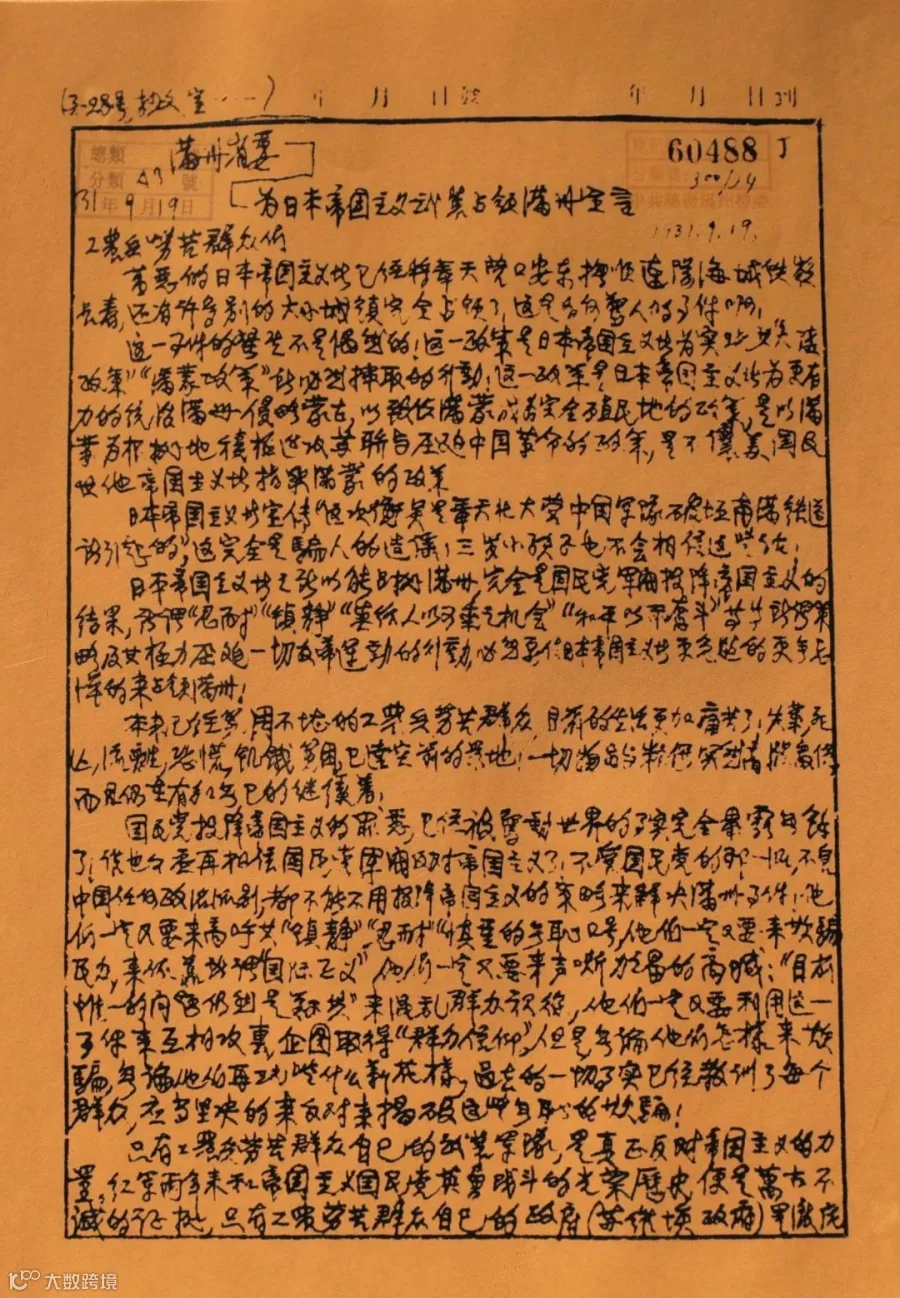 年 月 日 年 月 日到
满州省委
60488 丁
總類
分類 43 號
31年9月19日
为日本帝国主义武装占领满州宣言
1931.9.19.
工農兵劳苦群众们
萬惡的日本帝国主义者已经将奉天营口安东撫順遼陽海城铁岺
长春,还有許多别的大小城镇完全占领了,这是多么驚人的了件啊!
这一了件的發生不是偶然的!这一政策是日本帝国主义者为实现其"大陸
政策""满蒙政策"所必然採取的行動!这一政策是日本帝国主义者为更有
力的统治满州侵略蒙古,以致使满蒙成为完全殖民地的政策,是以满
蒙为根据地積极进攻苏联与压迫中国革命的政策,是
其他帝国主义者 满蒙的政策
日本帝国主义者宣传"这次衝突是奉天北大营中国军隊破坏南满铁道
所引起的",这完全是騙人的造谣!三岁小孩子也不会相信这些话!
日本帝国主义者之所以能占据满州,完全是国民党军阀投降帝国主义的
结果,所谓"忍耐""鎮静""莫给人以可乘之机会""和平以不奋斗"等等 策
略及其極力压迫一切反帝運動的行動,必然要使日本帝国主义者更急進的更無忌
惮的来占领满州!
本来已经 不堪的工農兵劳苦群众,目前的生活更加痛苦了!失業,死
亡,流離,恐慌,飢餓 已達空前的景地!一切
而且仍在有加無已的继续着!
国民党投降帝国主义的罪惡,已经被驚動世界的了实完全暴露無餘
了!谁也不要再相信国民党军阀反对帝国主义了!不管国民党的那一派,不管
中国任何政治派别,都不能不用投降帝国主义的策略来解决满州了件!他
们一定又要来高呼其"鎮静""忍耐""慎重"的無恥口号,他们一定又要来欺騙
民众,来依靠所谓"国际正义"他们一定又要来声嘶力竭的高喊:"目前
惟一的问题仍然是剿共"来混乱群众视线,他们一定又要利用这一
了件来互相攻裏,企图取得"群众信仰",但是無論他们怎樣来欺
騙,無論他们再玩些什么新花樣,过去的一切了实已经教训了每个
群众,应当坚决的来反对来揭破这些無恥的欺騙!
只有工農兵劳苦群众自己的武装军隊,是真正反对帝国主义的力
量,红军两年来和帝国主义国民党英勇战斗的光荣歷史,便是萬古不
滅的证据,只有工農劳苦群众自己的政府(苏维埃政府)
大数跨境